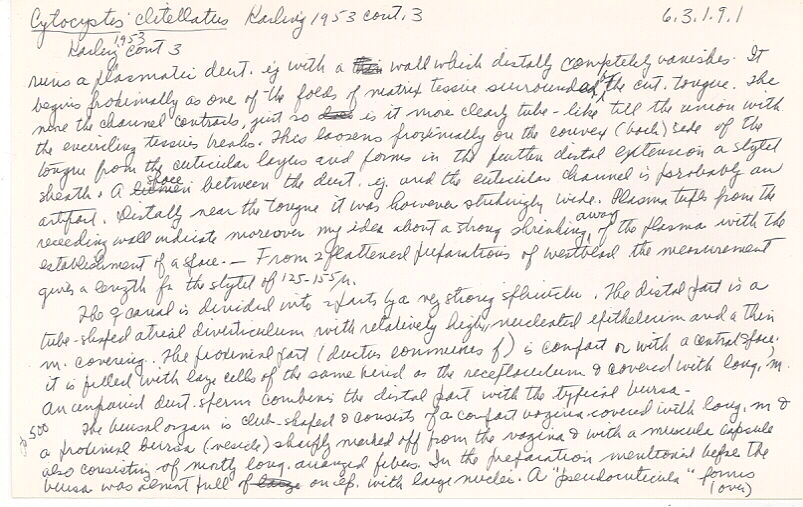 Cytocystis clitellatus Karling 1953 cont. 3 6.3.1.9.1
Karling 1953 cont 3
runs a plasmatic duct. ej with a wall which distally completely vanishes. It
begins proximally as one of the folds of matrix tissue surrounded the cut. tongue. The
more the channel contracts, just so is it more clearly tube-like till the union with
the encircling tissue breaks. This loosens proximally on the convex (back) side of the
tongue from the cuticular layers and forms in the further distal extension a stylet
sheath. A space between the duct. ej. and the cuticular channel is probably an
artifact. Distally near the tongue it was however strikingly wide. Plasma tufts from the
receeding wall indicate moreover my idea about a strong shrinking away of the plasma with the
establishment of a space. — From 2 flattened preparations of Westblad the measurement
gives a length for the stylet of 125-155 µ.
The ♀ canal is divided into 2 parts by a very strong sphincter. The distal part is a
tube-shaped atrial diverticulum with relatively high, nucleated epithelium and a thin
m. covering. The proximal part (ductus communis f) is compact or with a central space.
it is filled with large cells of the same kind as the receptaculum & covered with long. m.
An unpaired duct. sperm. combines the distal part with the typical bursa.
p 500 The bursal organ is club-shaped & consists of a compact vagina covered with long. m &
a proximal bursa (vesicle) sharply marked off from the vagina & with a muscular capsule
also consisting of mostly long. arranged fibers. In the preparation mentioned before the
bursa was almost full of an ep. with large nuclei. A "pseudocuticula" forms
(over)